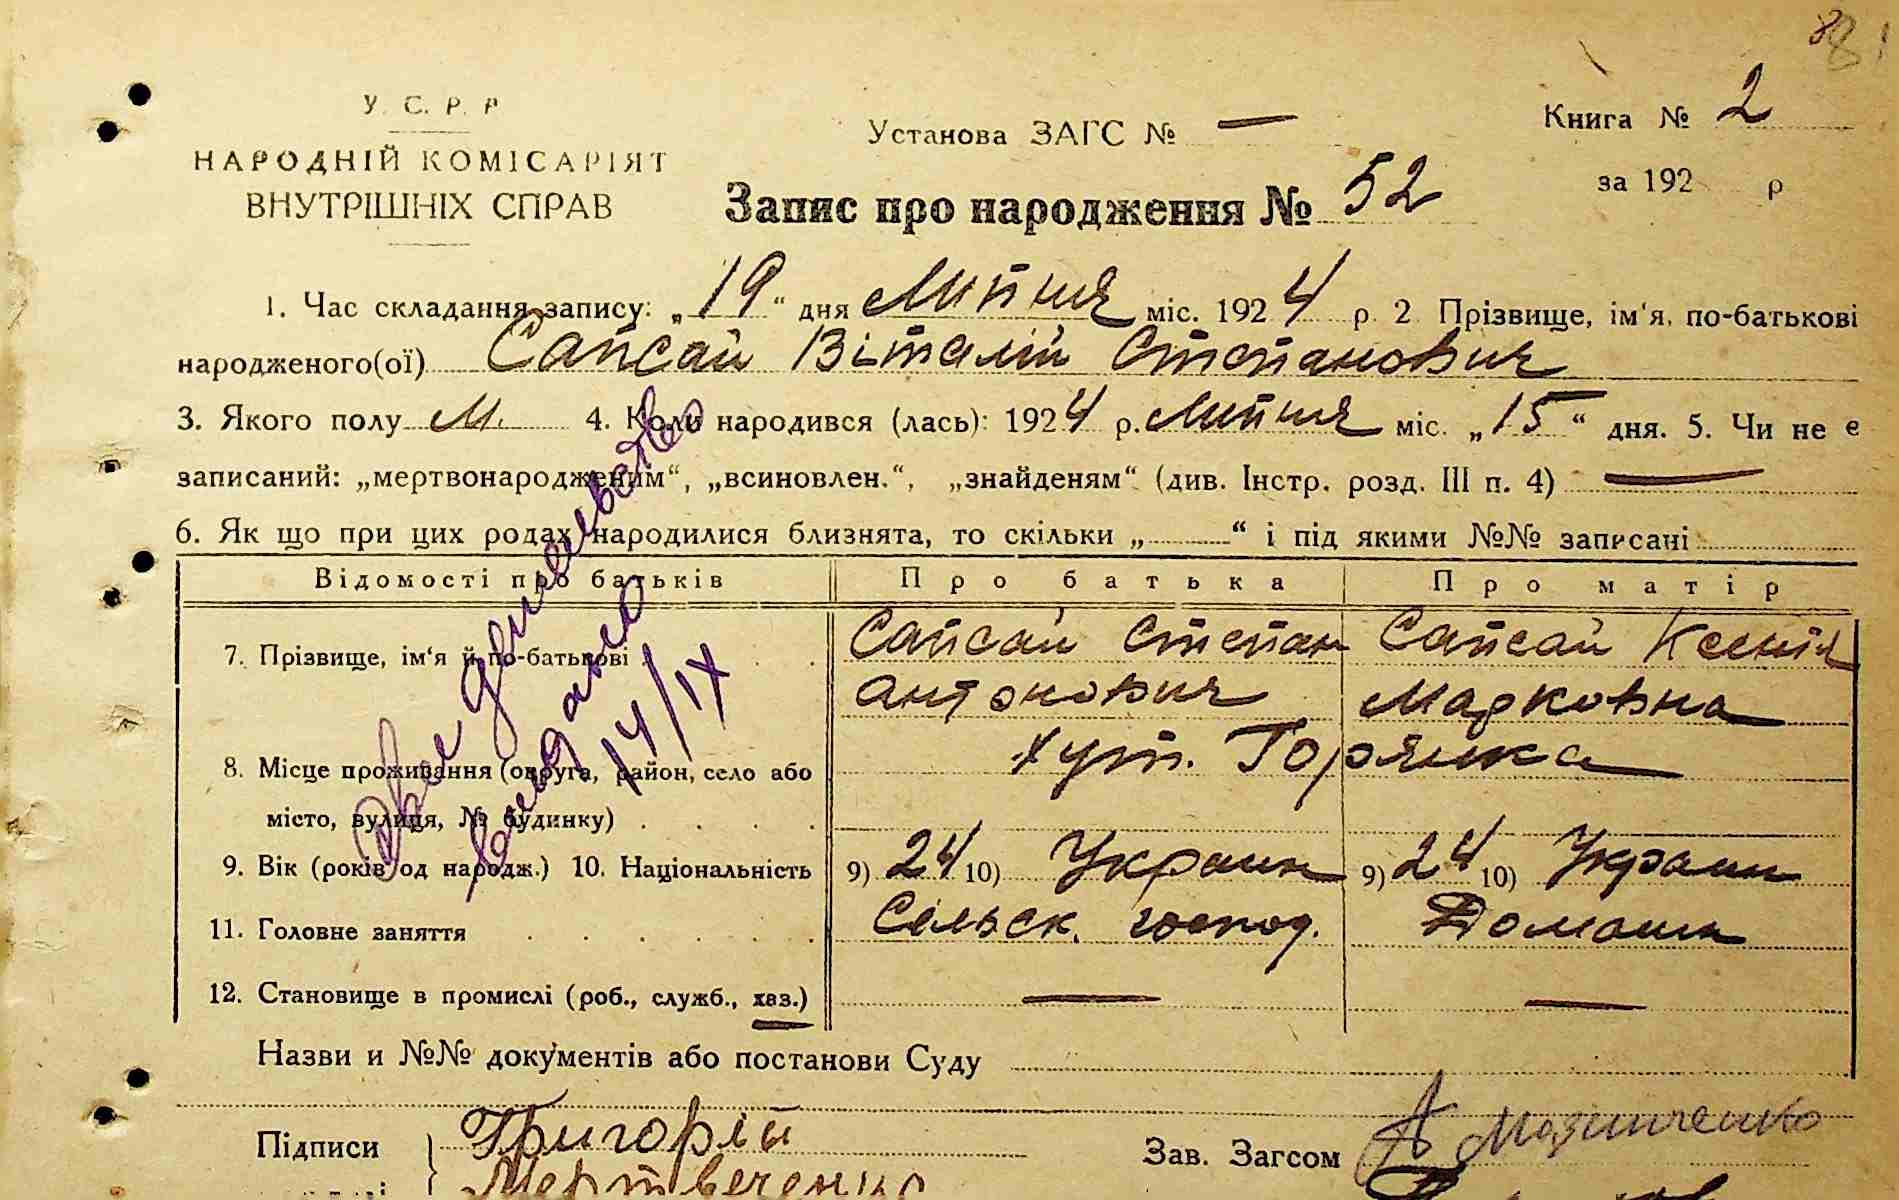 81
У. С. Р. Р
НАРОДНІЙ КОМІСАРІЯТ
ВНУТРІШНІХ СПРАВ
Установа ЗАГС № —
Книга № 2
за 192 р
Запис про народження № 52
1. Час складання запису: „19“ дня Липня міс. 1924 р. 2 Прізвище, ім‘я, по-батькові
народженого(ої) Сапсай Віталій Степанович
3. Якого полу М. 4. Коли народився (лась): 1924 р. Липня міс. „15“ дня. 5. Чи не є
записаний: „мертвонародженим“, „всиновлен.“, „знайденям“ (див. Інстр. розд. III п. 4) —
6. Як що при цих родах народилися близнята, то скільки „ “ і під якими №№ записані
Відомості про батьків Про батька Про матір
7. Прізвище, ім‘я й по-батькові Сапсай Степан Сапсай Ксенія
Антонович Марковна
8. Місце проживання (округа, район, село або хут. Горянка
місто, вулиця, № будинку)
9. Вік (років од народж.) 10. Національність 9) 24 10) Украин 9) 24 10) Украин
11. Головне заняття Сельск. господ. Домашн
12. Становище в промислі (роб., служб., хаз.) — —
Двое
выдано
14/IX
Назви и №№ документів або постанови Суду
Підписи Григорій Зав. Загсом А Мазниченко
Мертвеченко